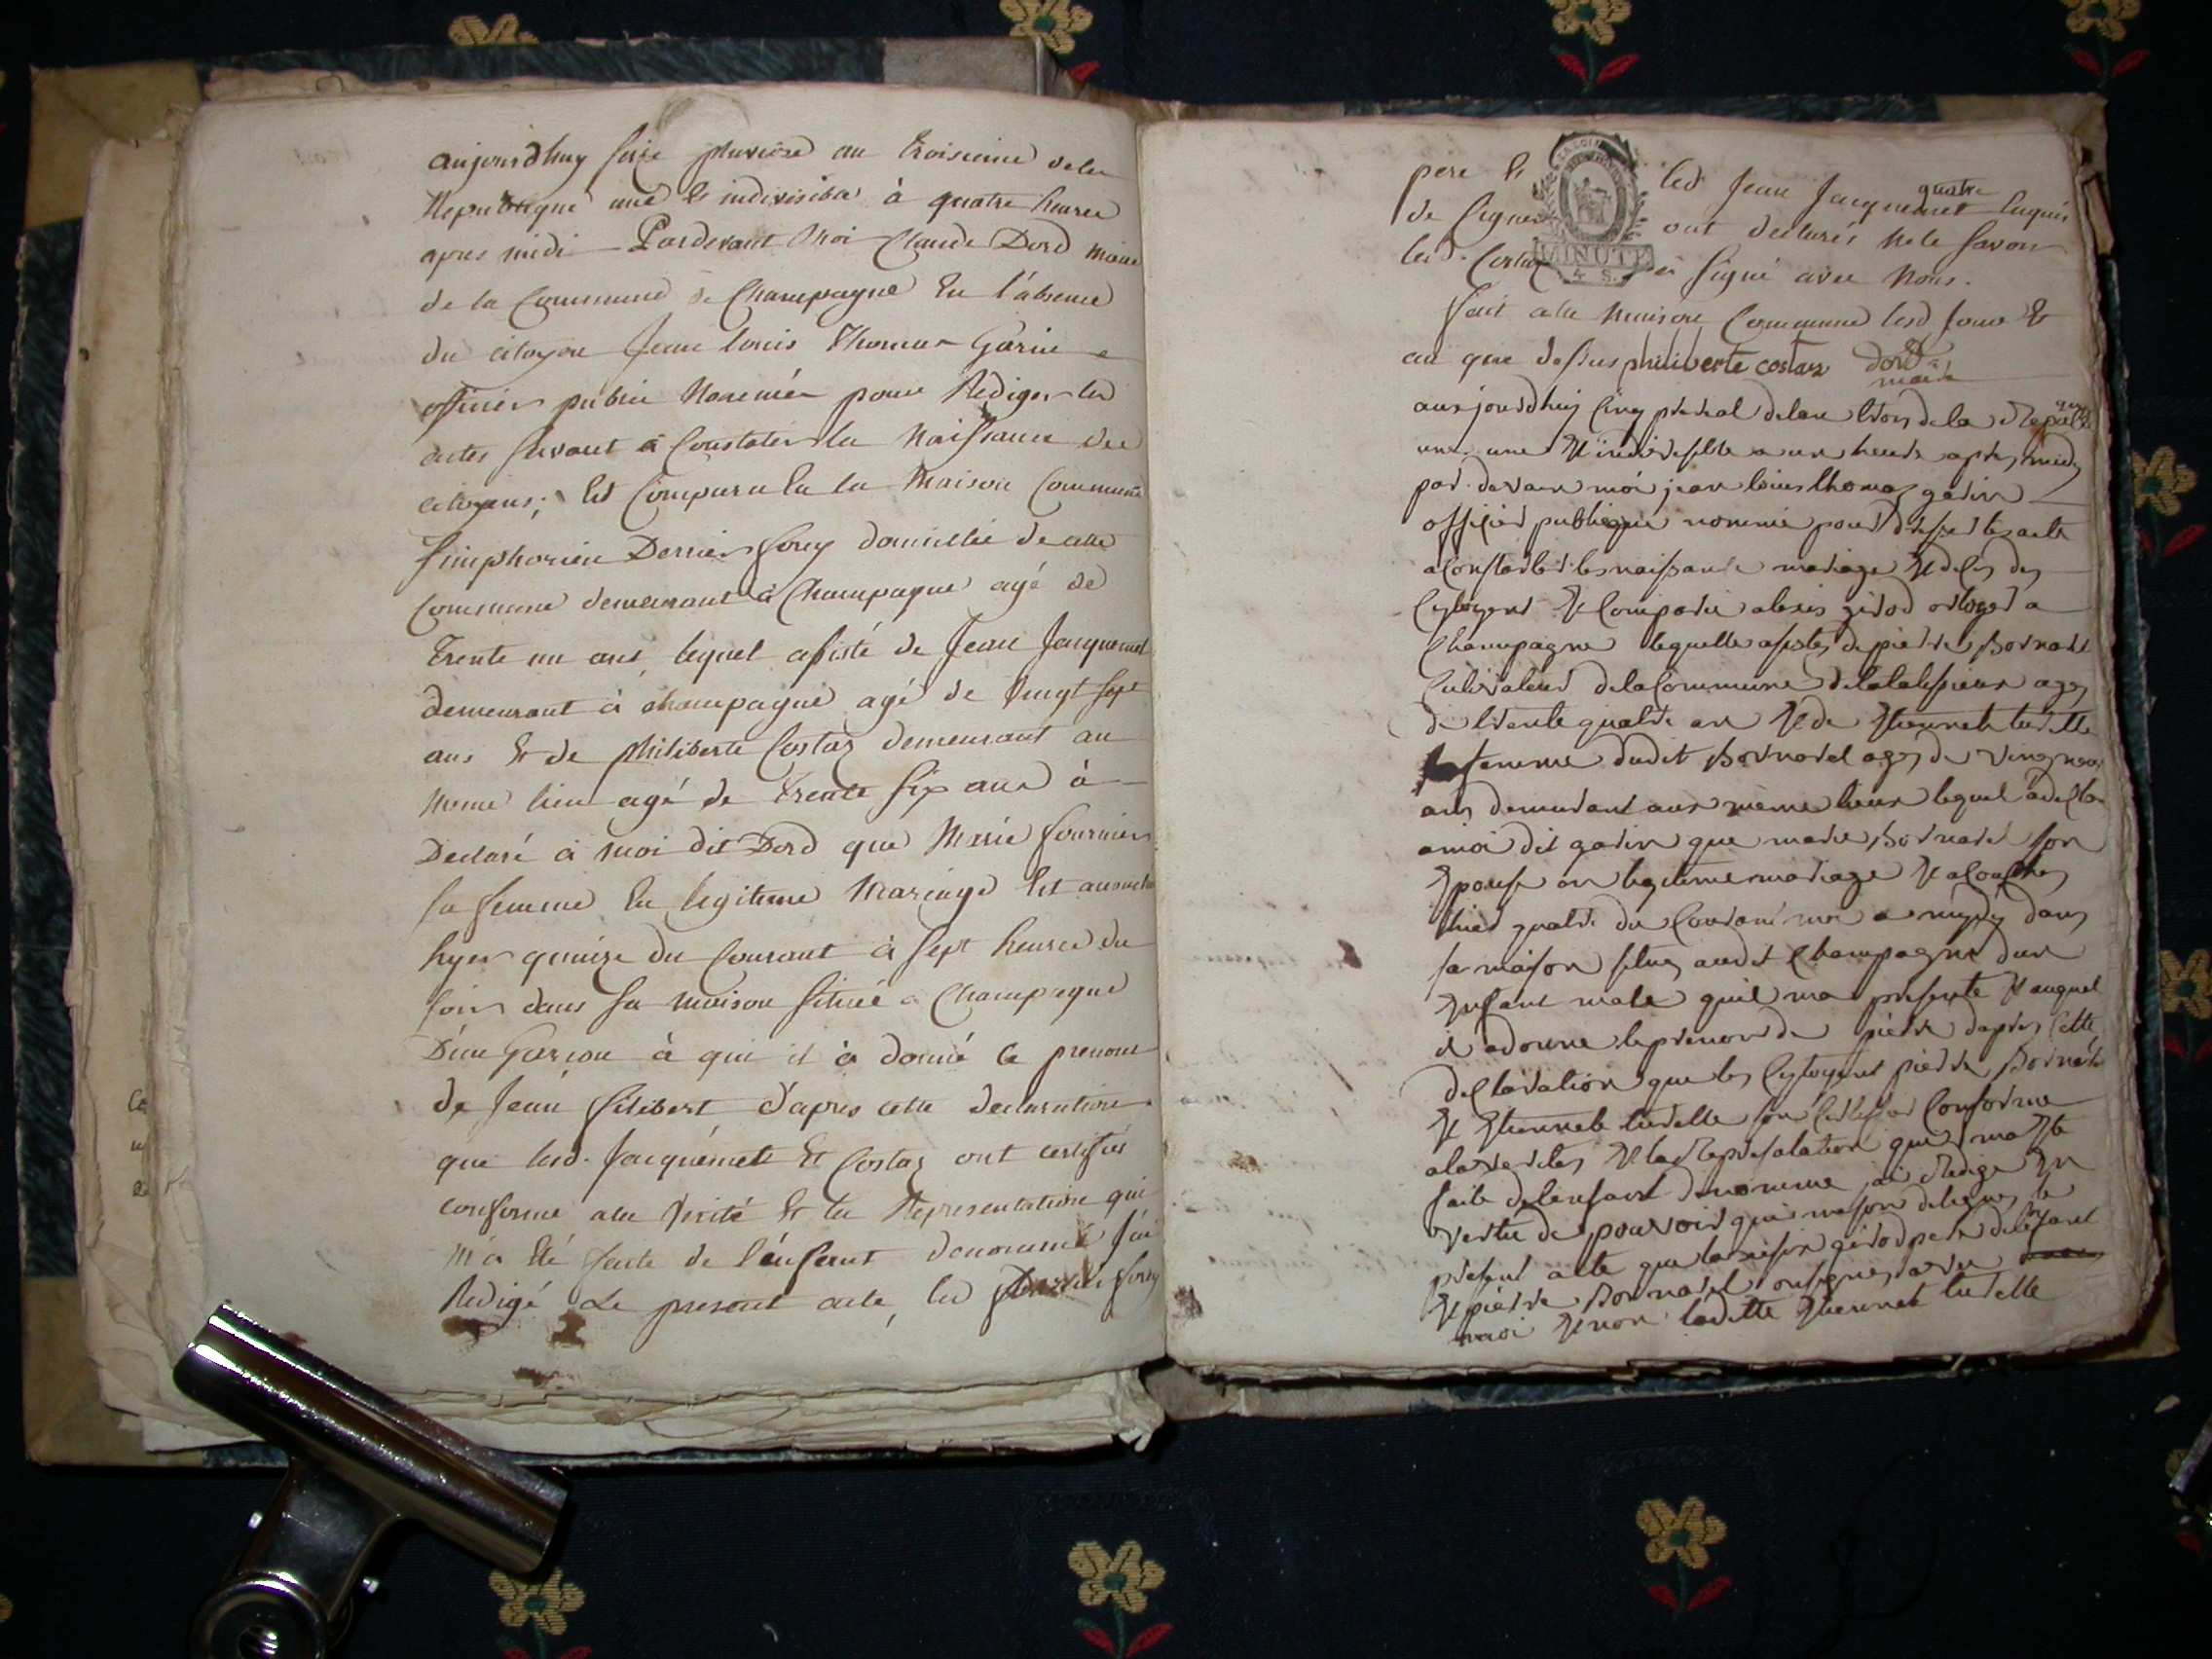 aujourdhuy seize pluviose an troisieme de la
Republique une & indivisible à quatre heures
apres midi Pardevant Moi Claude Dord Maire
de la Commune de Champagne En l'absence
du citoyen Jean louis Thomas Garin
officier public Nommé pour Rediger les
actes servant à Constater la Naissance des
citoyens; Est Comparu En la Maison Commune
Simphorien Dernier Sorey domicilié de cette
Commune demeurant à Champagne agé de
Trente un ans, lequel assisté de Jean Jacquemet
demeurant à champagne agé de vingt sept
ans & de philiberte Costaz demeurant au
meme lieu agé de trente six ans à
Declaré à moi dit Dord que Marie fournier
sa femme En legitime Mariage Est accouchée
hyer quinze du Courant à sept heures du
soir dans sa maison située à Champagne
D'un Garcon à qui il à donné le prenom
de Jean filibert d'apres cette declaration
que lesd. Jacquemet & Costaz ont certifiés
conforme a la verité & la Representation qui
m'a été faite de l'enfant denommé J'ai
Redigé Le present acte, led
pere & led Jean Jacquemet requis
de signer ont declarés ne le savoir
led. Costaz à signé avec Nous.
MINUTE
4 S.
fait a la maison Commune lesd jour &
an que dessus philiberte costaz Dord
maire
aurjourdhuij cinq prerial de lan trois de la Republique
une & indivisible a un heure apres midy
par devan moi jean louis thomas garin
officier publique nommé pour dresser les acte
a constater les naissance mariage & deces des
Cytoyens & Comparu alexis girod orloger a
Champagne lequelle asisté de pierre Bornard
Cultivateur de la Commune de agé
de trente quatre an & de Etiennete
femme dudit Bornard agé de vingt neuf
ans demurant aux meme lieux lequel a declare
a moi dit garin que marie Bornard son
Epouse en legitime mariage & acouché
hier quatre du Courant moi a midy dans
sa maison situé audit Champagne dun
Enfant male quil ma presente & auquel
il a donne le prenom de pierre dapres cette
declaration que les Cytoyens pierre Bornard
& Etiennete on certifier Conforme
a la verites & la Representation qui ma Ete
faite de lenfant denomme jai Redige En
vertu de pouvoir qui me son delegues le
present acte que girod pere de lenfant
& pierre Bornard on signe avec
moi & non laditte Etiennete